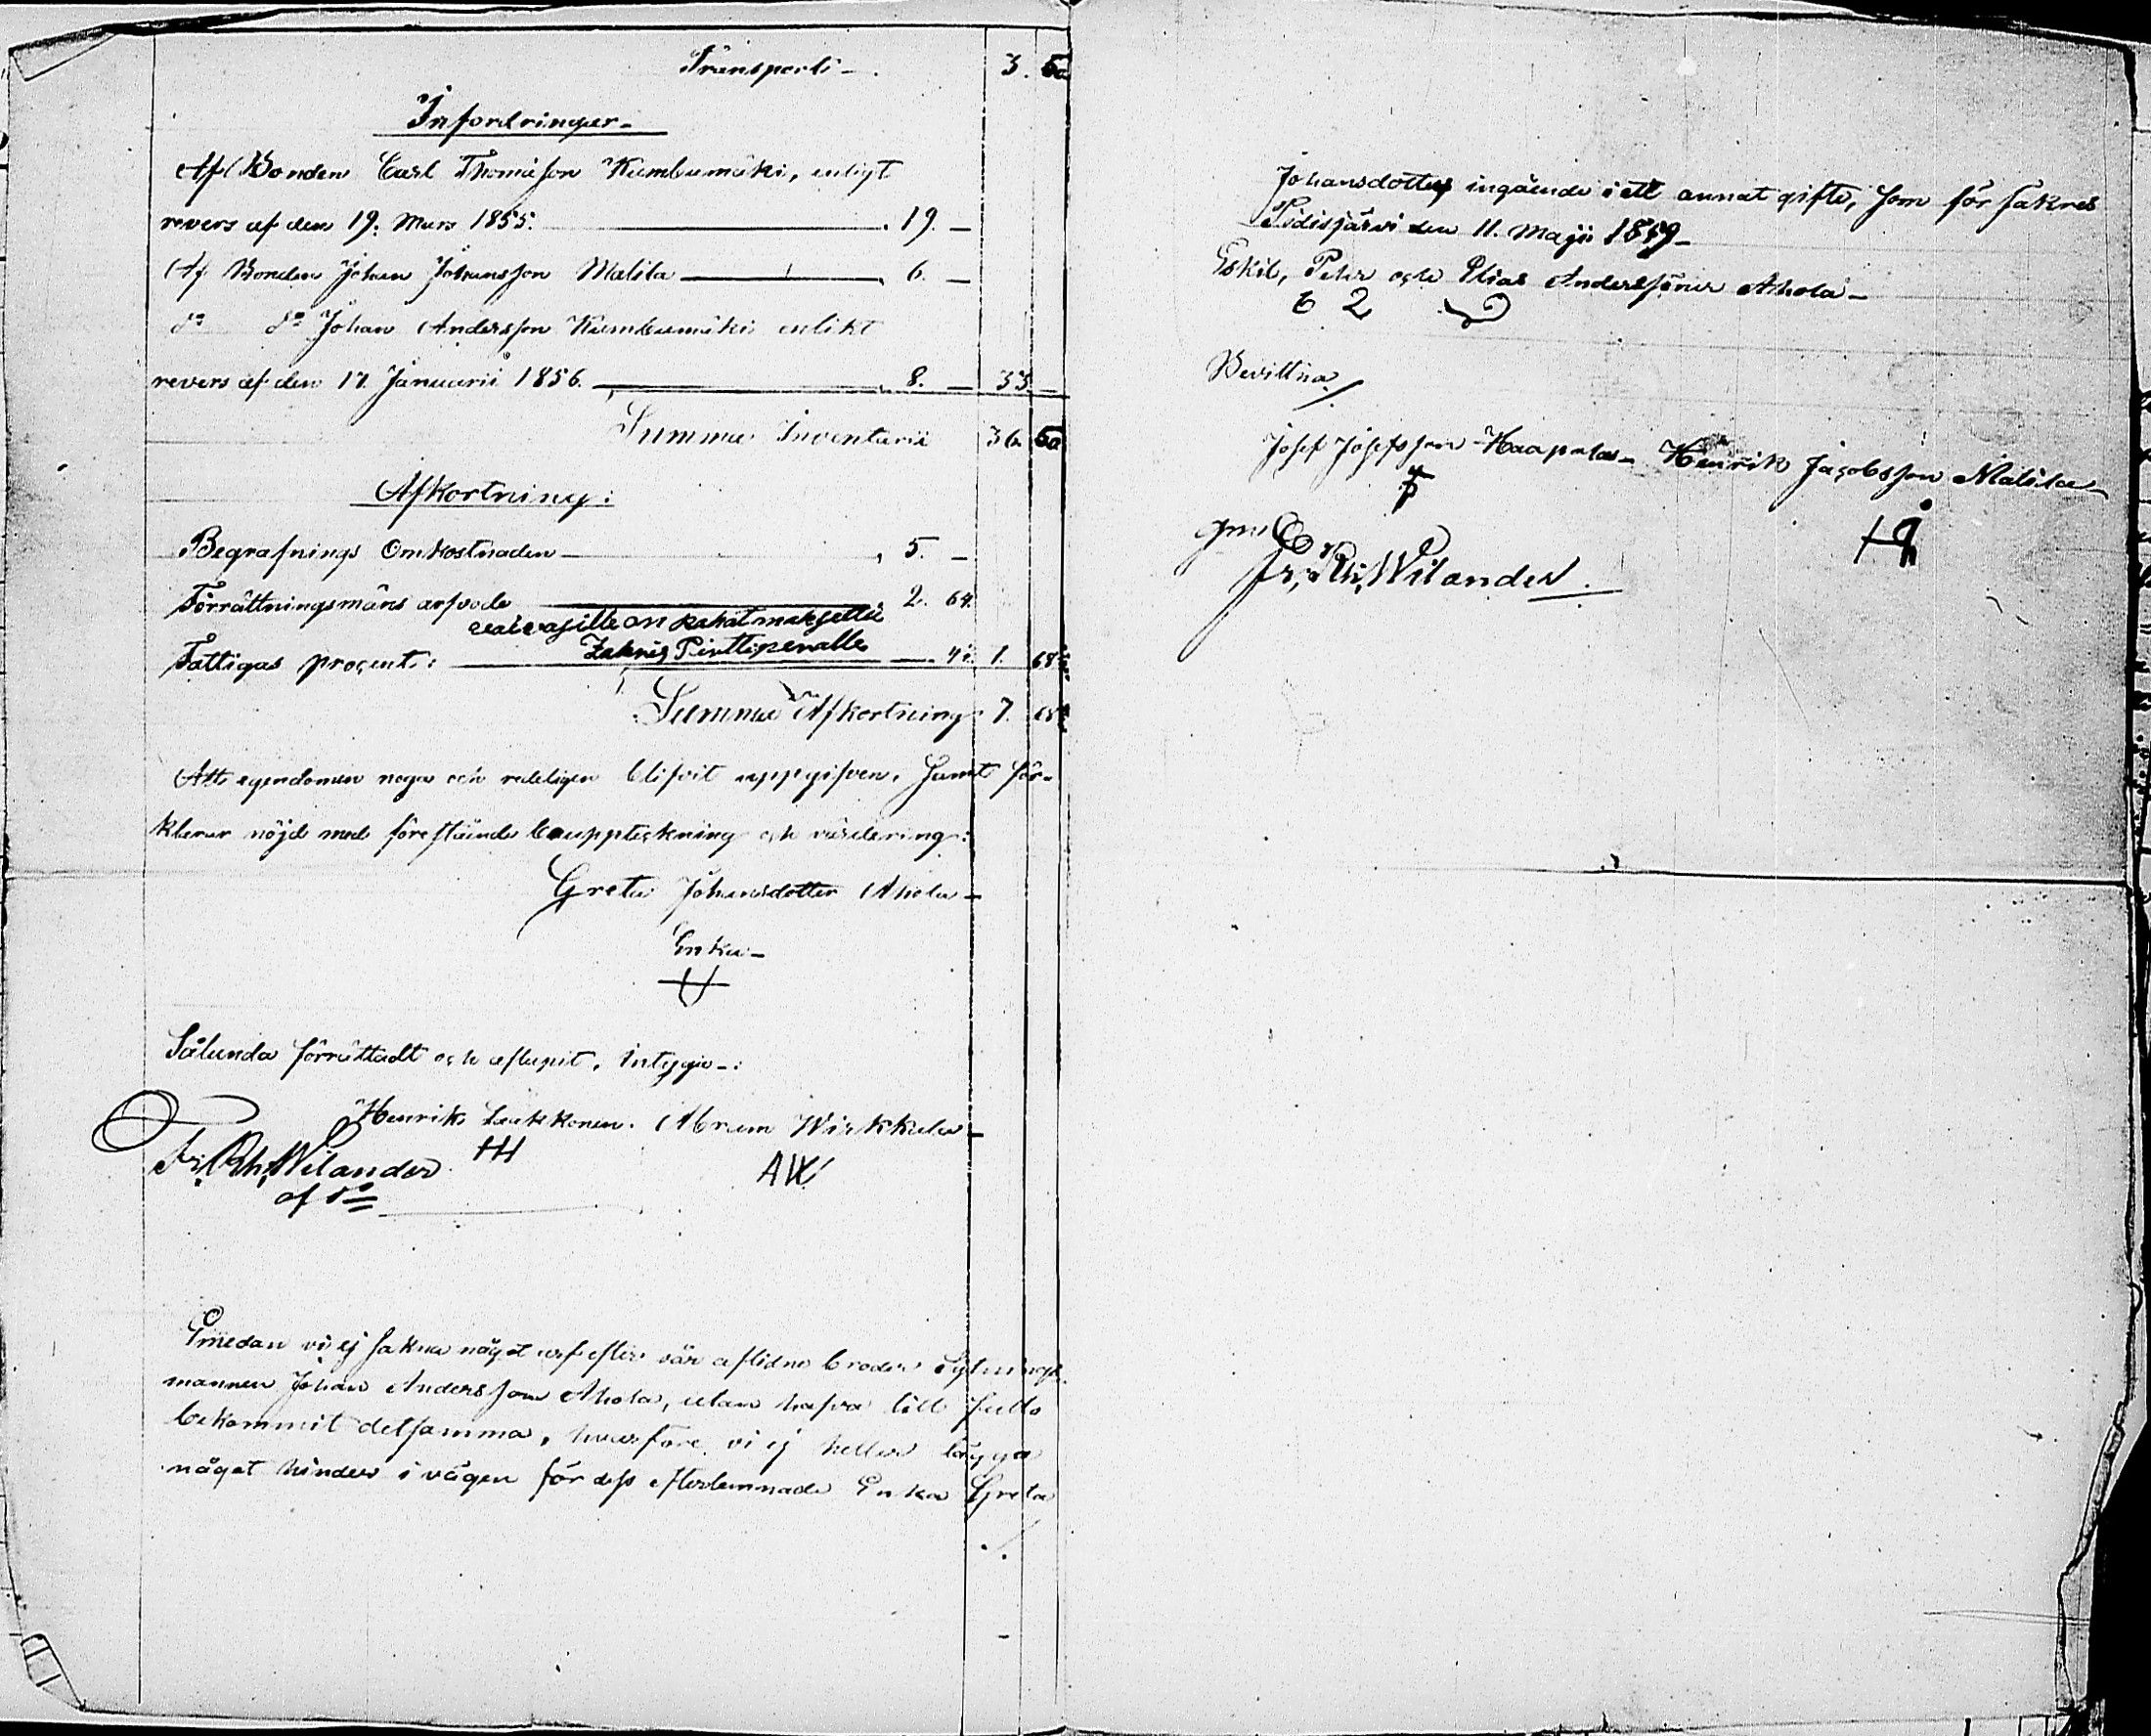 Transport – 3. 50
Infordringar –
Af Bonden Carl Thomasson Kumbumäki, enligt
revers af den 19. Mars 1855. 19. –
Af Bonden Johan Johansson Matila 6. –
do do Johan Andersson Kumbumäki enlikt
revers af den 17. Januarii 1856. 8. – 33. –
Summa Inventarii 36. 50
Afkortning:
Begrafnings Omkostnaden 5. –
Förrättningsmäns arfvode 2. 64.
vaivasille on rahat maksettu
Pirttiperalle
Fattigas procent: 
Summa Afkortning 7.
Att egendomen noga och redeligen blifvit uppgifven, samt för-
klarar nöjd med föreståndne bouppteckning och värdering:
Greta Johansdotter Ahola –
Enka –
Sålunda förrättadt och aflupit, intyga –:
Henrik Laukkonen. Abram Wirkkala –
Fr. Rh. Wilander HH AW
Emedan vi ej sakna något arf efter vår aflidne broder Sytnings-
mannen Johan Andersson Ahola, utan hafva till fullo
bekommit detsamma, hvarföre vi ej heller lägga
något hinder i vägen för dess efterlemnade Enka Greta
./.
Johansdotters ingående i ett annat gifte, som försäkras
Sidisjärvi den 11. Maji 1859 –
Eskil, Pehr och Elias Anderssöner Ahola –
Bevittna/
Josef Josefsson Haapala – Henrik Jacobsson Matila –
Fr. Rh. Wilander.